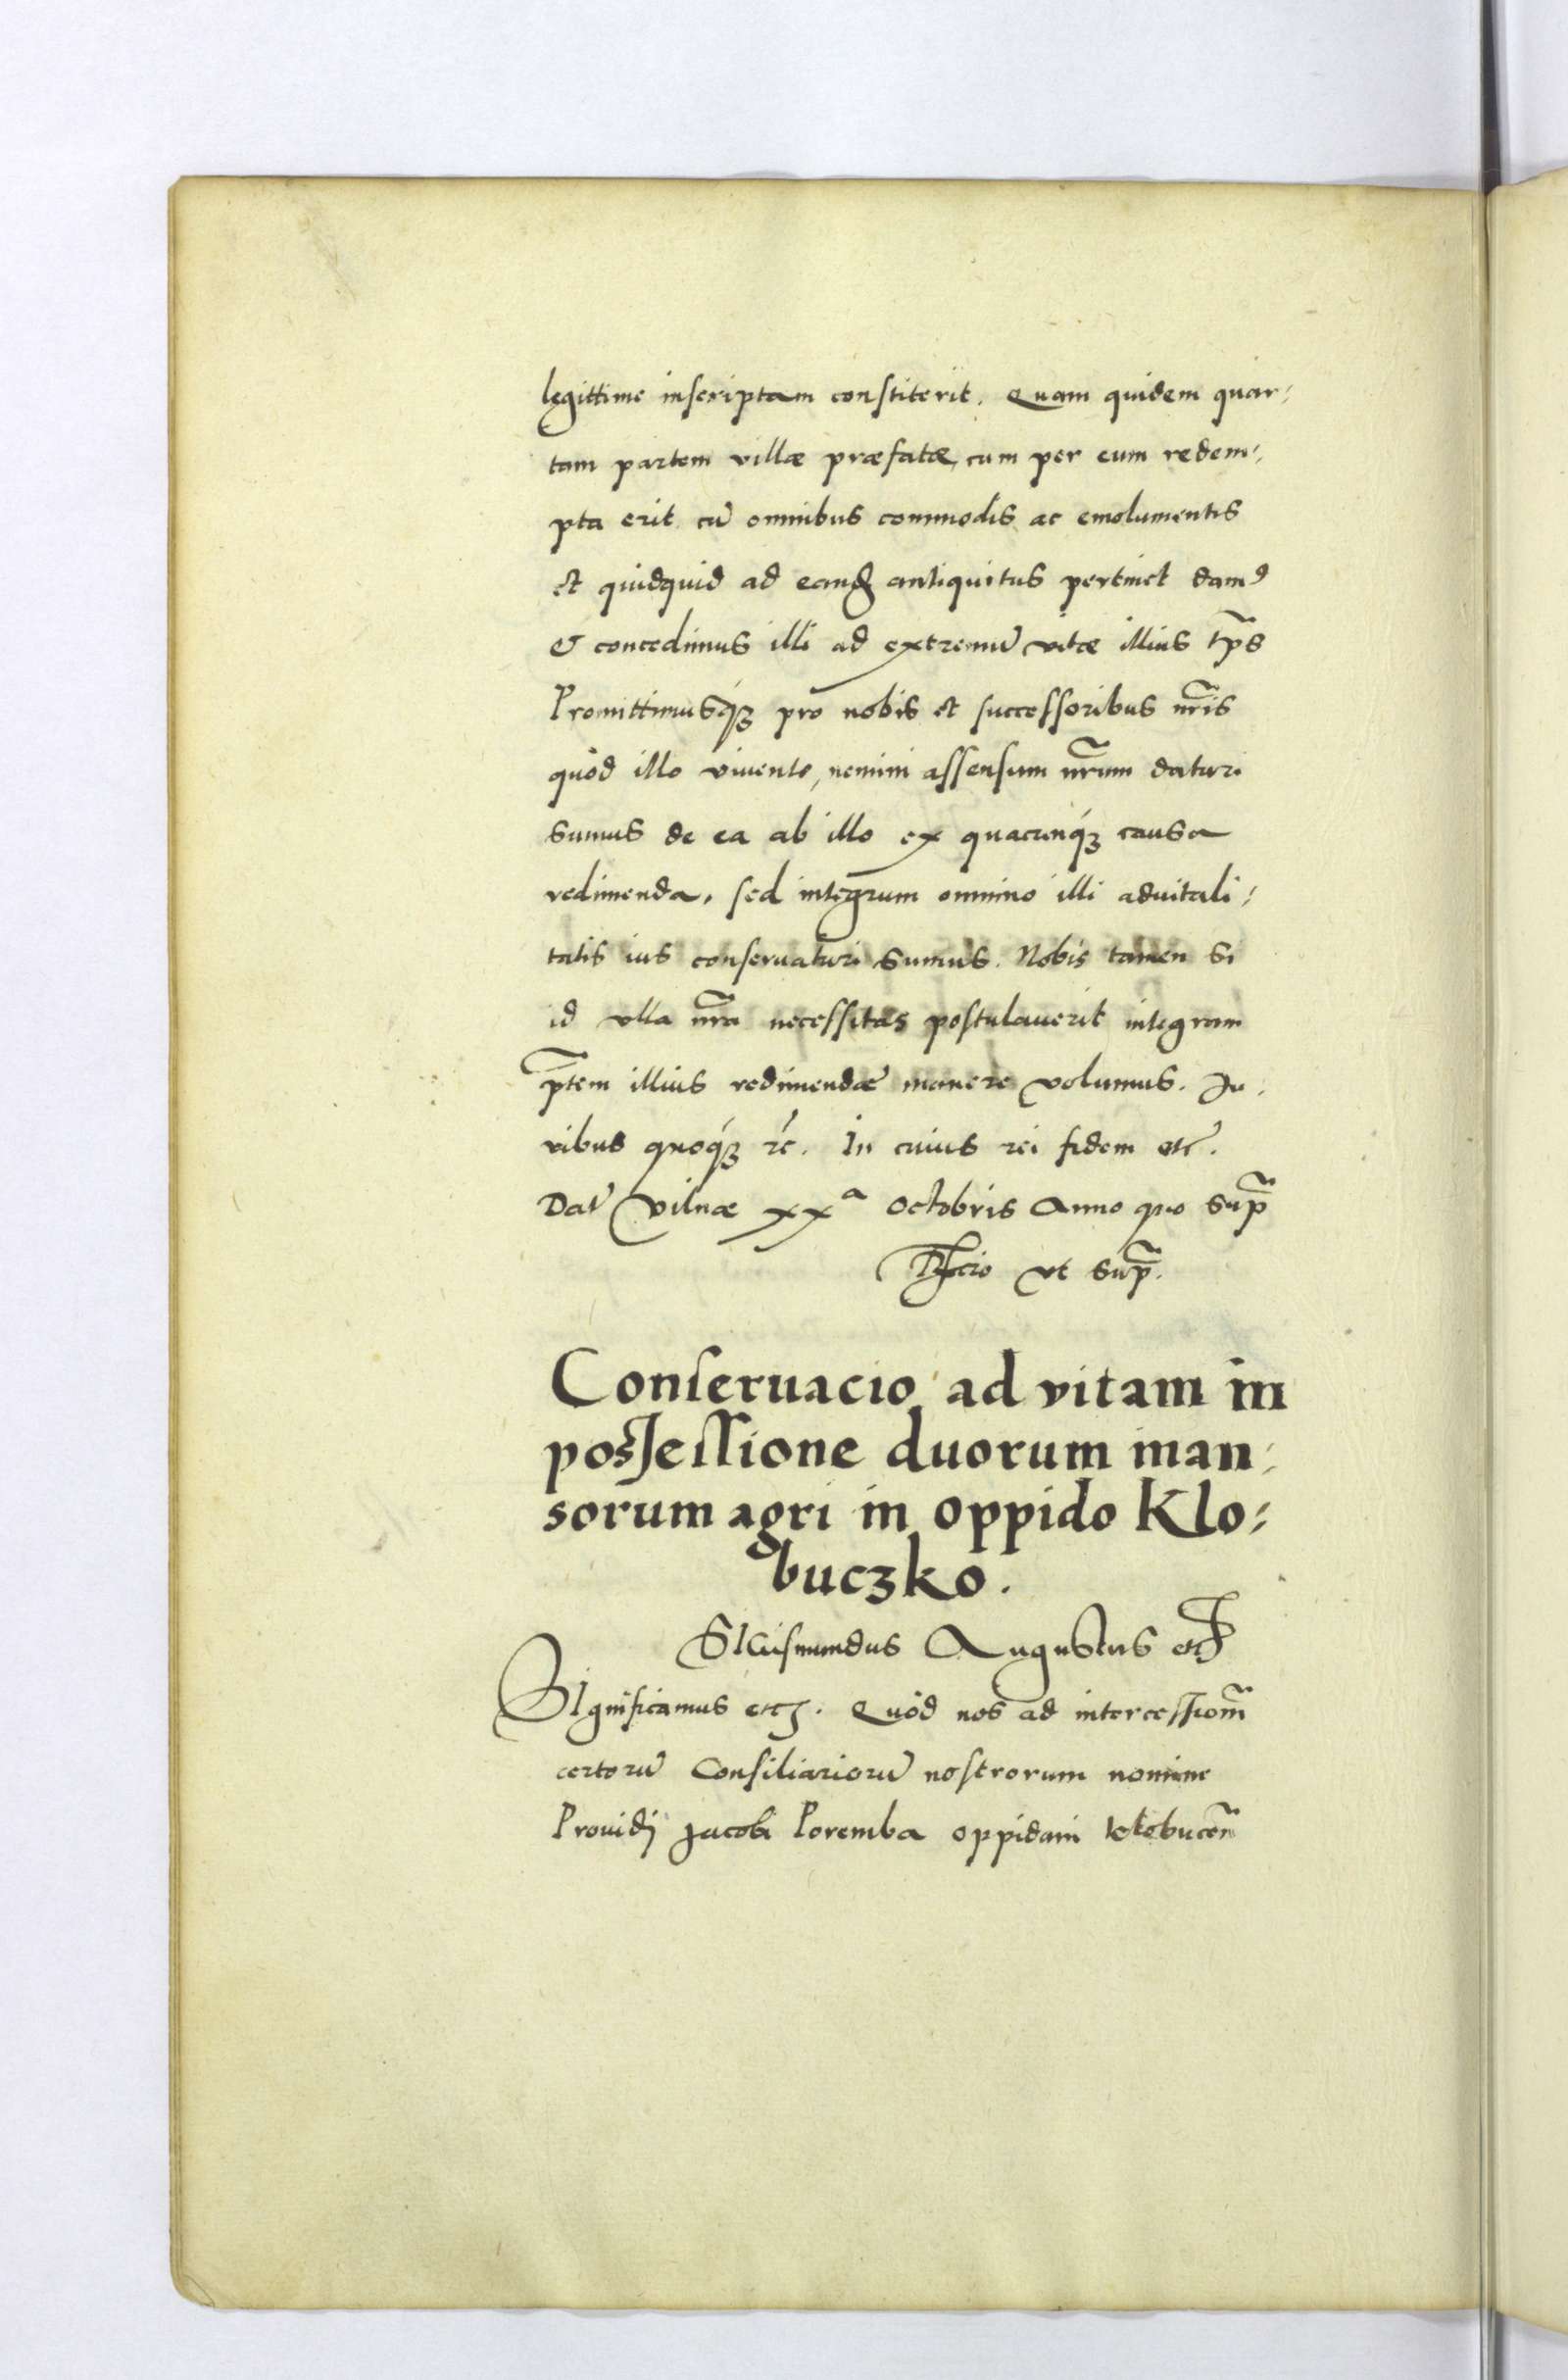 legittime inscriptam constiterit. Quam quidem quar⸗
tam partem villæ præfatæ, cum per eum redem⸗
pta erit cū omnibus commodis ac emolumentis
et quidquid ad eand antiquitus pertinet damꝰ
& concedimus illi ad extremū vitæ illius tp̄s
Promittimusqꝫ pro nobis et successoribus nr̄is
quòd illo viuente, nemini assensum nr̄um daturi
sumus de ea ab illo ex quacunqꝫ causa
redimenda, sed integrum omnino illi aduitali⸗
tatis ius conseruaturi sumus. Nobis tamen si
id vlla nr̄a necessitas postulauerit integram
p̄tem illius redimendæ manere volumus. Ju⸗
ribus quoqꝫ rc̄. In cuius rei fidem etc̄.
Dat̄ Vilnæ xxᵃ Octobris Anno quo sup̄
Rl̄cio vt sup̄.
Conseruacio ad vitam in
possessione duorum man⸗
sorum agri in oppido Klo⸗
buczko.
SIGismundus Augustus etc̄
SIgnificamus etc. Quòd nos ad intercessiom̄
certorū Consiliariorū nostrorum nomine
Prouidj Jacobi Poremba oppidani Klobucen̄